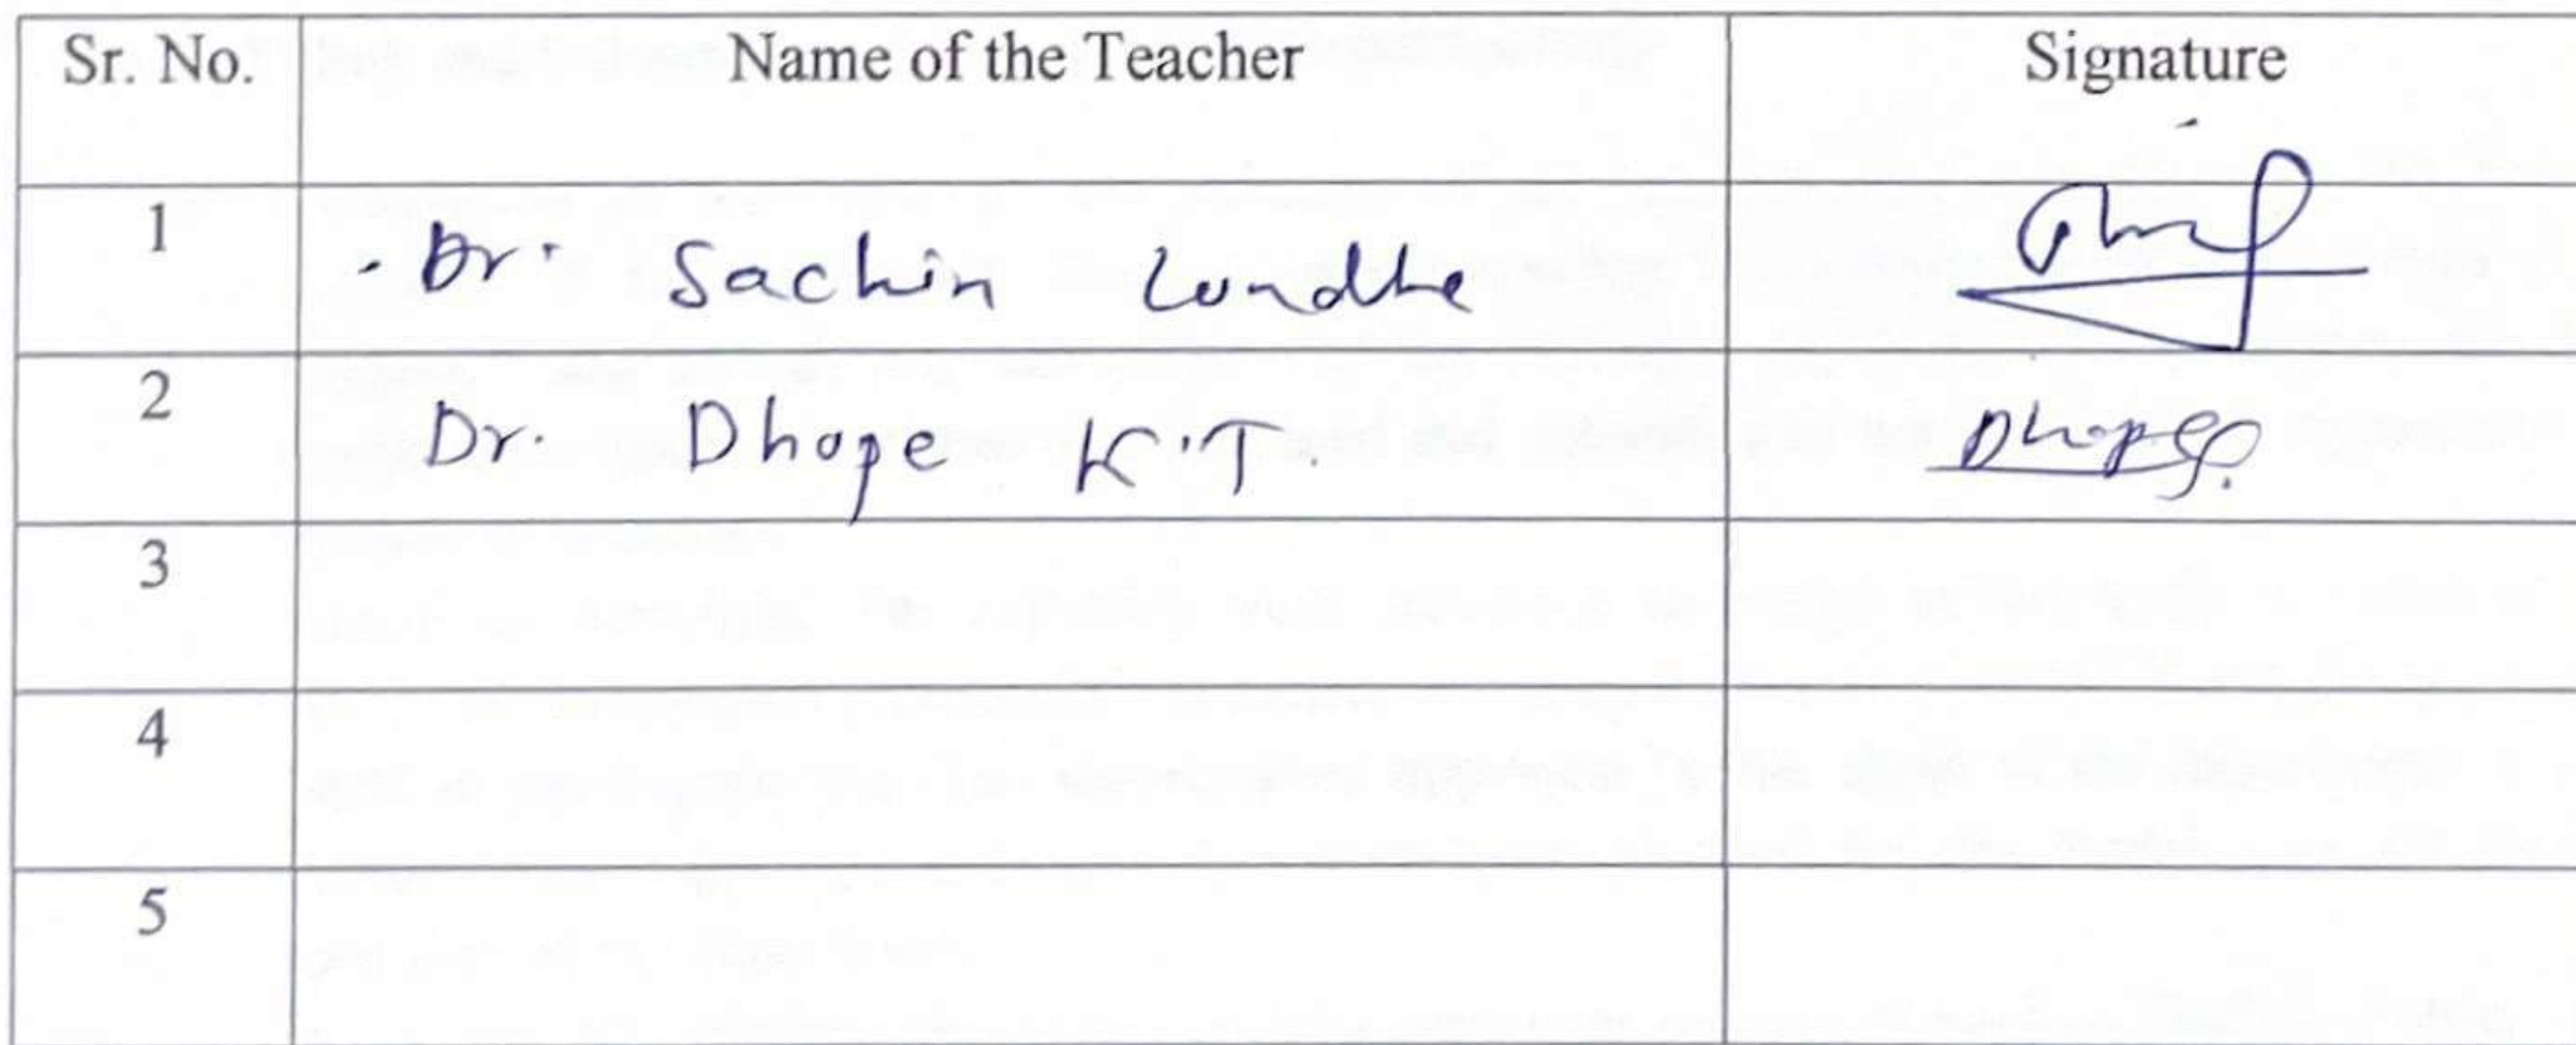 Sr. No. Name of the Teacher Signature
1 Dr. Sachin Londhe
2 Dr. Dhope K.T. Dhope
3
4
5